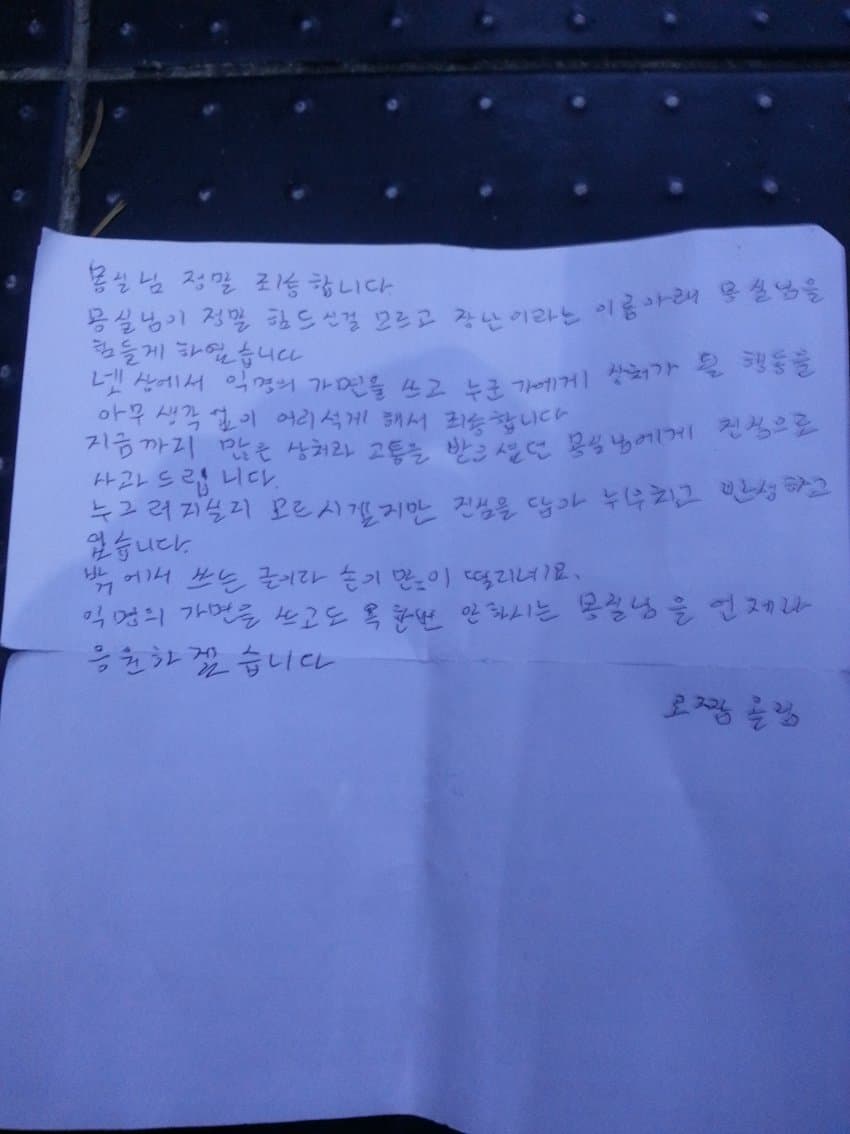 몽실님 정말 죄송합니다
몽실님이 정말 힘드신걸 모르고 장난이라는 이름아래 몽실님을
힘들게 하였습니다
넷상에서 익명의 가면을 쓰고 누군가에게 상처가 될 행동을
아무 생각 없이 어리석게 해서 죄송합니다
지금까지 많은 상처와 고통을 받으셨던 몽실님에게 진심으로
사과드립니다.
누그러지실지 모르시겠지만 진심을 담아 뉘우치고 반성하고
있습니다.
밖에서 쓰는 글이라 손이 많이 떨리네요.
익명의 가면을 쓰고도 욕 한번 안하시는 몽실님을 언제나
응원하겠습니다
올림